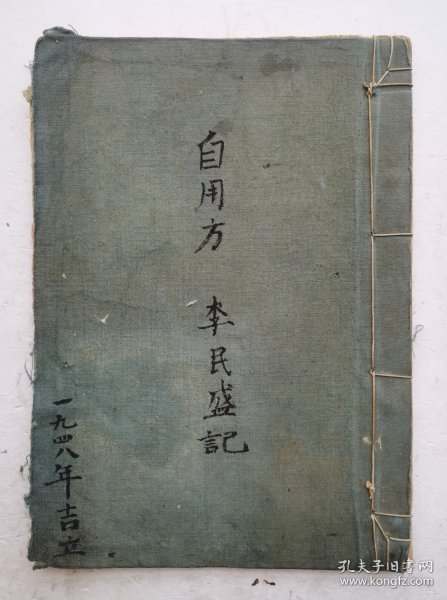 自用方 李民盛記
一九四八年吉立
孔夫子旧书网
www.kongfz.com